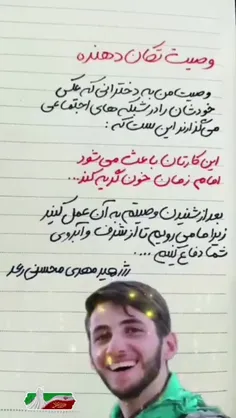 وصیت تکان دهنده
وصیت من به دخترانی که عکس
خودشان را در شبکه های اجتماعی
می‌گذارند این ست که :
این کارتان باعث می شود
امام زمان خون گریه کند...
بعد از شنیدن وصیتم به آن عمل کنید
زیرا ما می رویم تا از شرف و آبروی
شما دفاع کنیم ....
شهید مهدی محسنی رعد